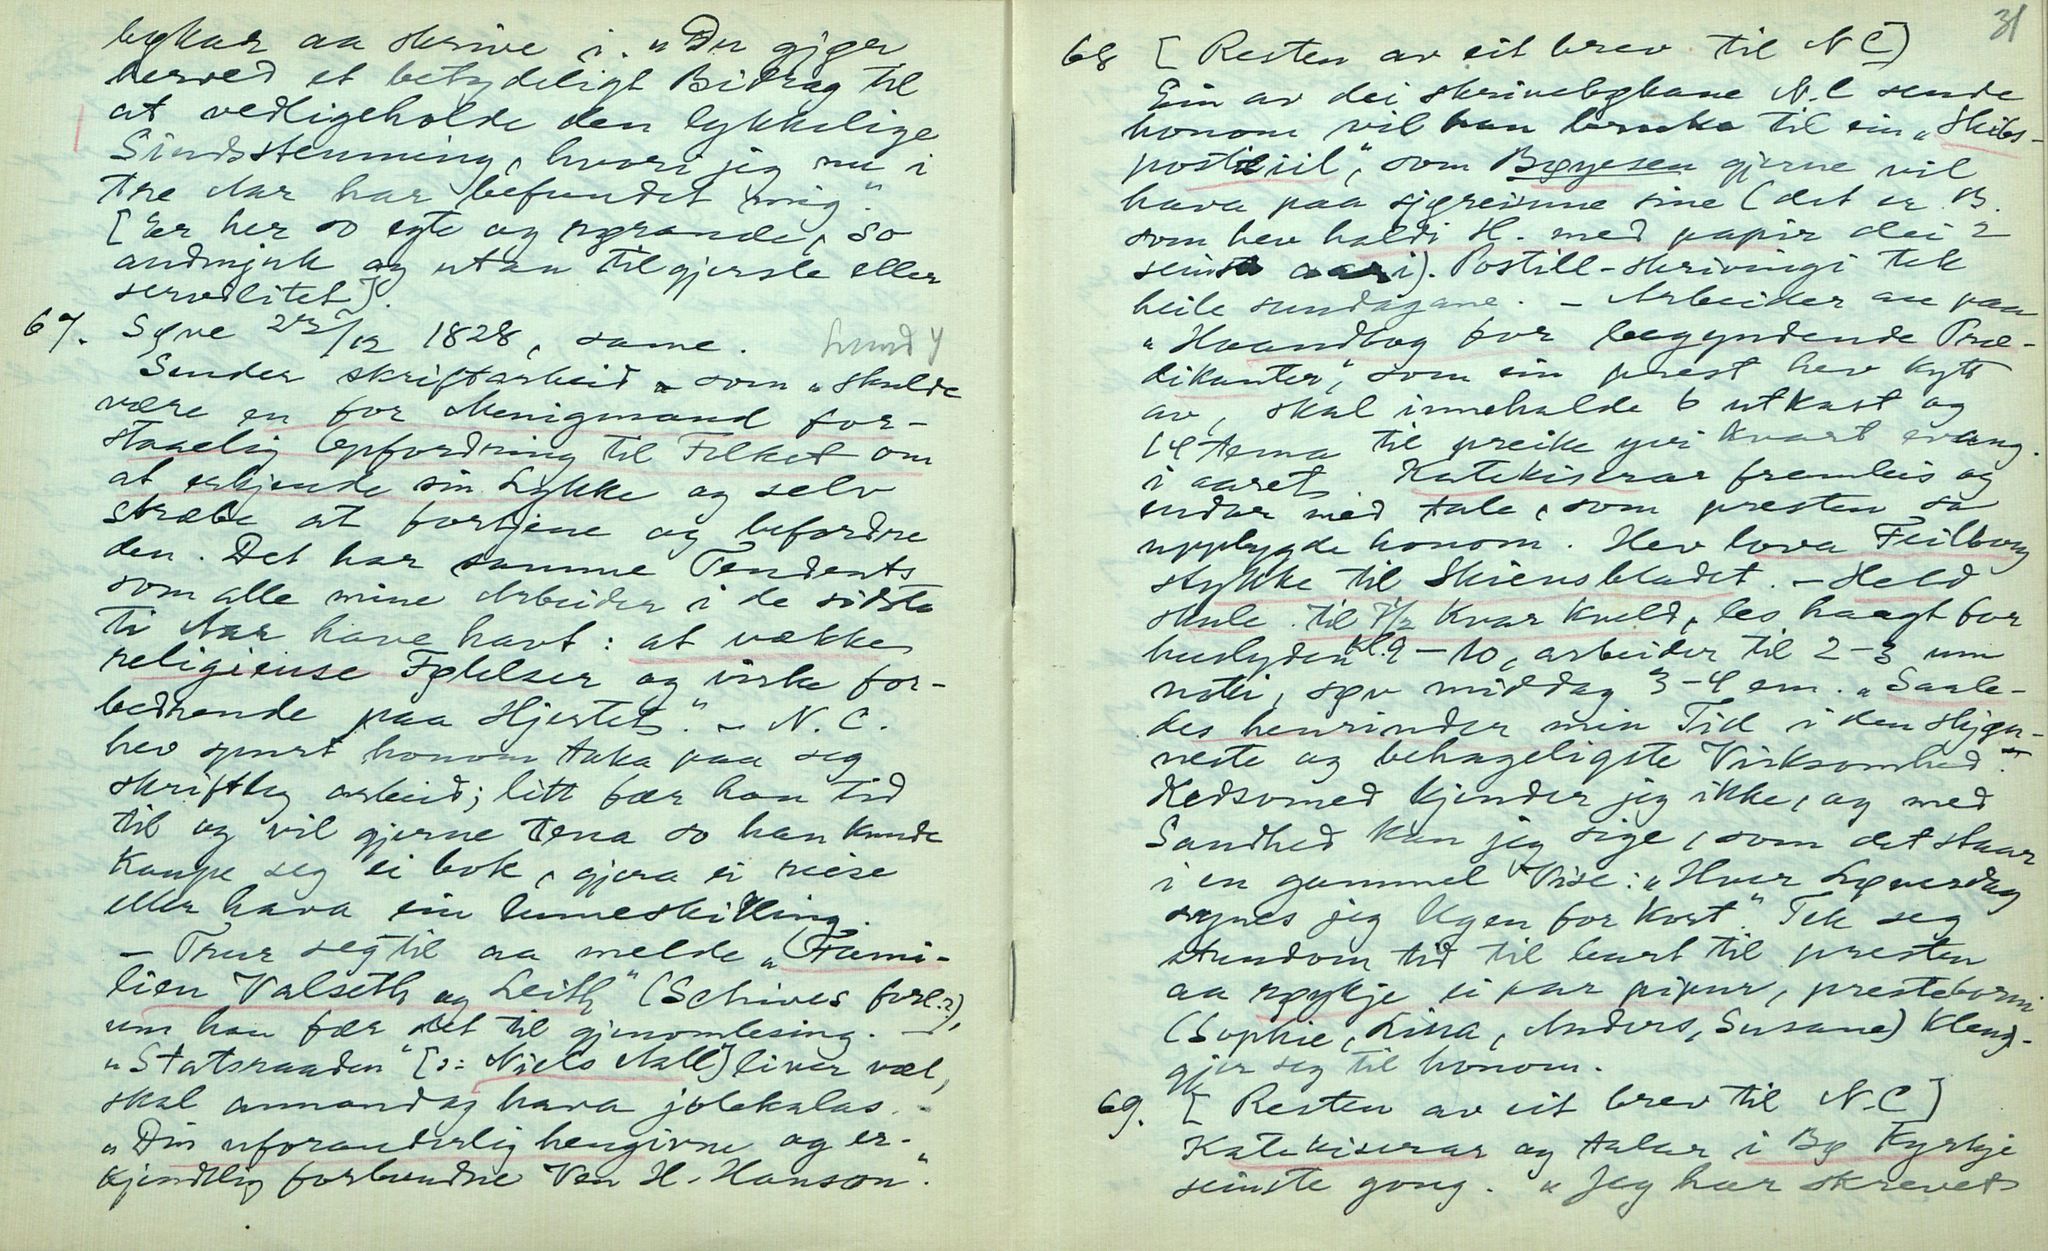 bøkar aa skrive i. "Du gjør
herved et betydeligt Bidrag til
at vedligeholde den lykkelige
Sindsstemning, hvori jeg nu i
tre Aar har befundet mig."
[Er her so egte og nøgrande, so
audmjuk og utan tilgjersle eller
servilitet].
67. Søve 27/12 1828, same. Lund 4
Sender skriftarbeid - som "skulde
være en for Menigmand for-
staaelig Opfordring til Folket om
at erkjende sin Lykke og selv
stræbe at fortjene og befordre
den. Det har samme Tendents
som alle mine Arbeider i de sidste
ti Aar have havt: at vække
religieuse Følelser og virke for-
bedrende paa Hjertet." - N. C.
hev spurt honom taka paa seg
skriftleg arbeid; litt fær han tid
til og vil gjerne tena so han kunde
kaupe seg ei bok, gjera ei reise
eller hava ein lumeskilling.
- Trur seg til aa melde "Fami-
lien Valseth og Leith" (Schives forl.?),
um han fær det til gjenomlesing. -
"Statsraaden" [ɔ: Niels Aall] liver væl,
skal annandag hava jolekalas. -
"Din uforanderlig hengivne og er-
kjendtlig forbundne Ven H. Hanson".
31
68 [Resten av eit brev til N C]
Ein av dei skrivebøkane N.C sende
honom vil han bruka til ein "Skibs-
postiil", som Bøyesen gjerne vil
hava paa sjøreisune sine (det er B.
som hev haldi H. med papir dei 2
seinste aari). Postill-skrivingi tek
heile sundagane. - Arbeider au paa
"Haandbog for begyndende Præ-
dikanter", som ein prest hev kytt
av, skal innehalde 6 utkast og
14 tema til preike yvi kvart evang.
i aaret. Katekiserar framleis og
endar med tale, som presten sa
uppbygde honom. Hev lova Feilberg
stykke til Skiensbladet. - Held
skule til 7½ kvar kveld, les høgt for
huslyden kl. 9-10, arbeider til 2-3 um
noti, søv middag 3-4 em. "Saale-
des henrinder min Tid i den skjøn-
neste og behageligste Virksomhed."
Kedsomed kjender jeg ikke, og med
Sandhed kan jeg sige, som det staar
i en gammel Vise: "Hver Løverdag
synes jeg Ugen for kort." Tek seg
stundom tid til burt til presten
aa røykje ei par pipur, presteborni
(Sophie, Lina, Anders, Susane) kleng-
gjer seg til honom.
69. [Resten av eit brev til N.C]
Katekiserar og talar i Bø Kyrkje
seinste gong. "Jeg har skrevet